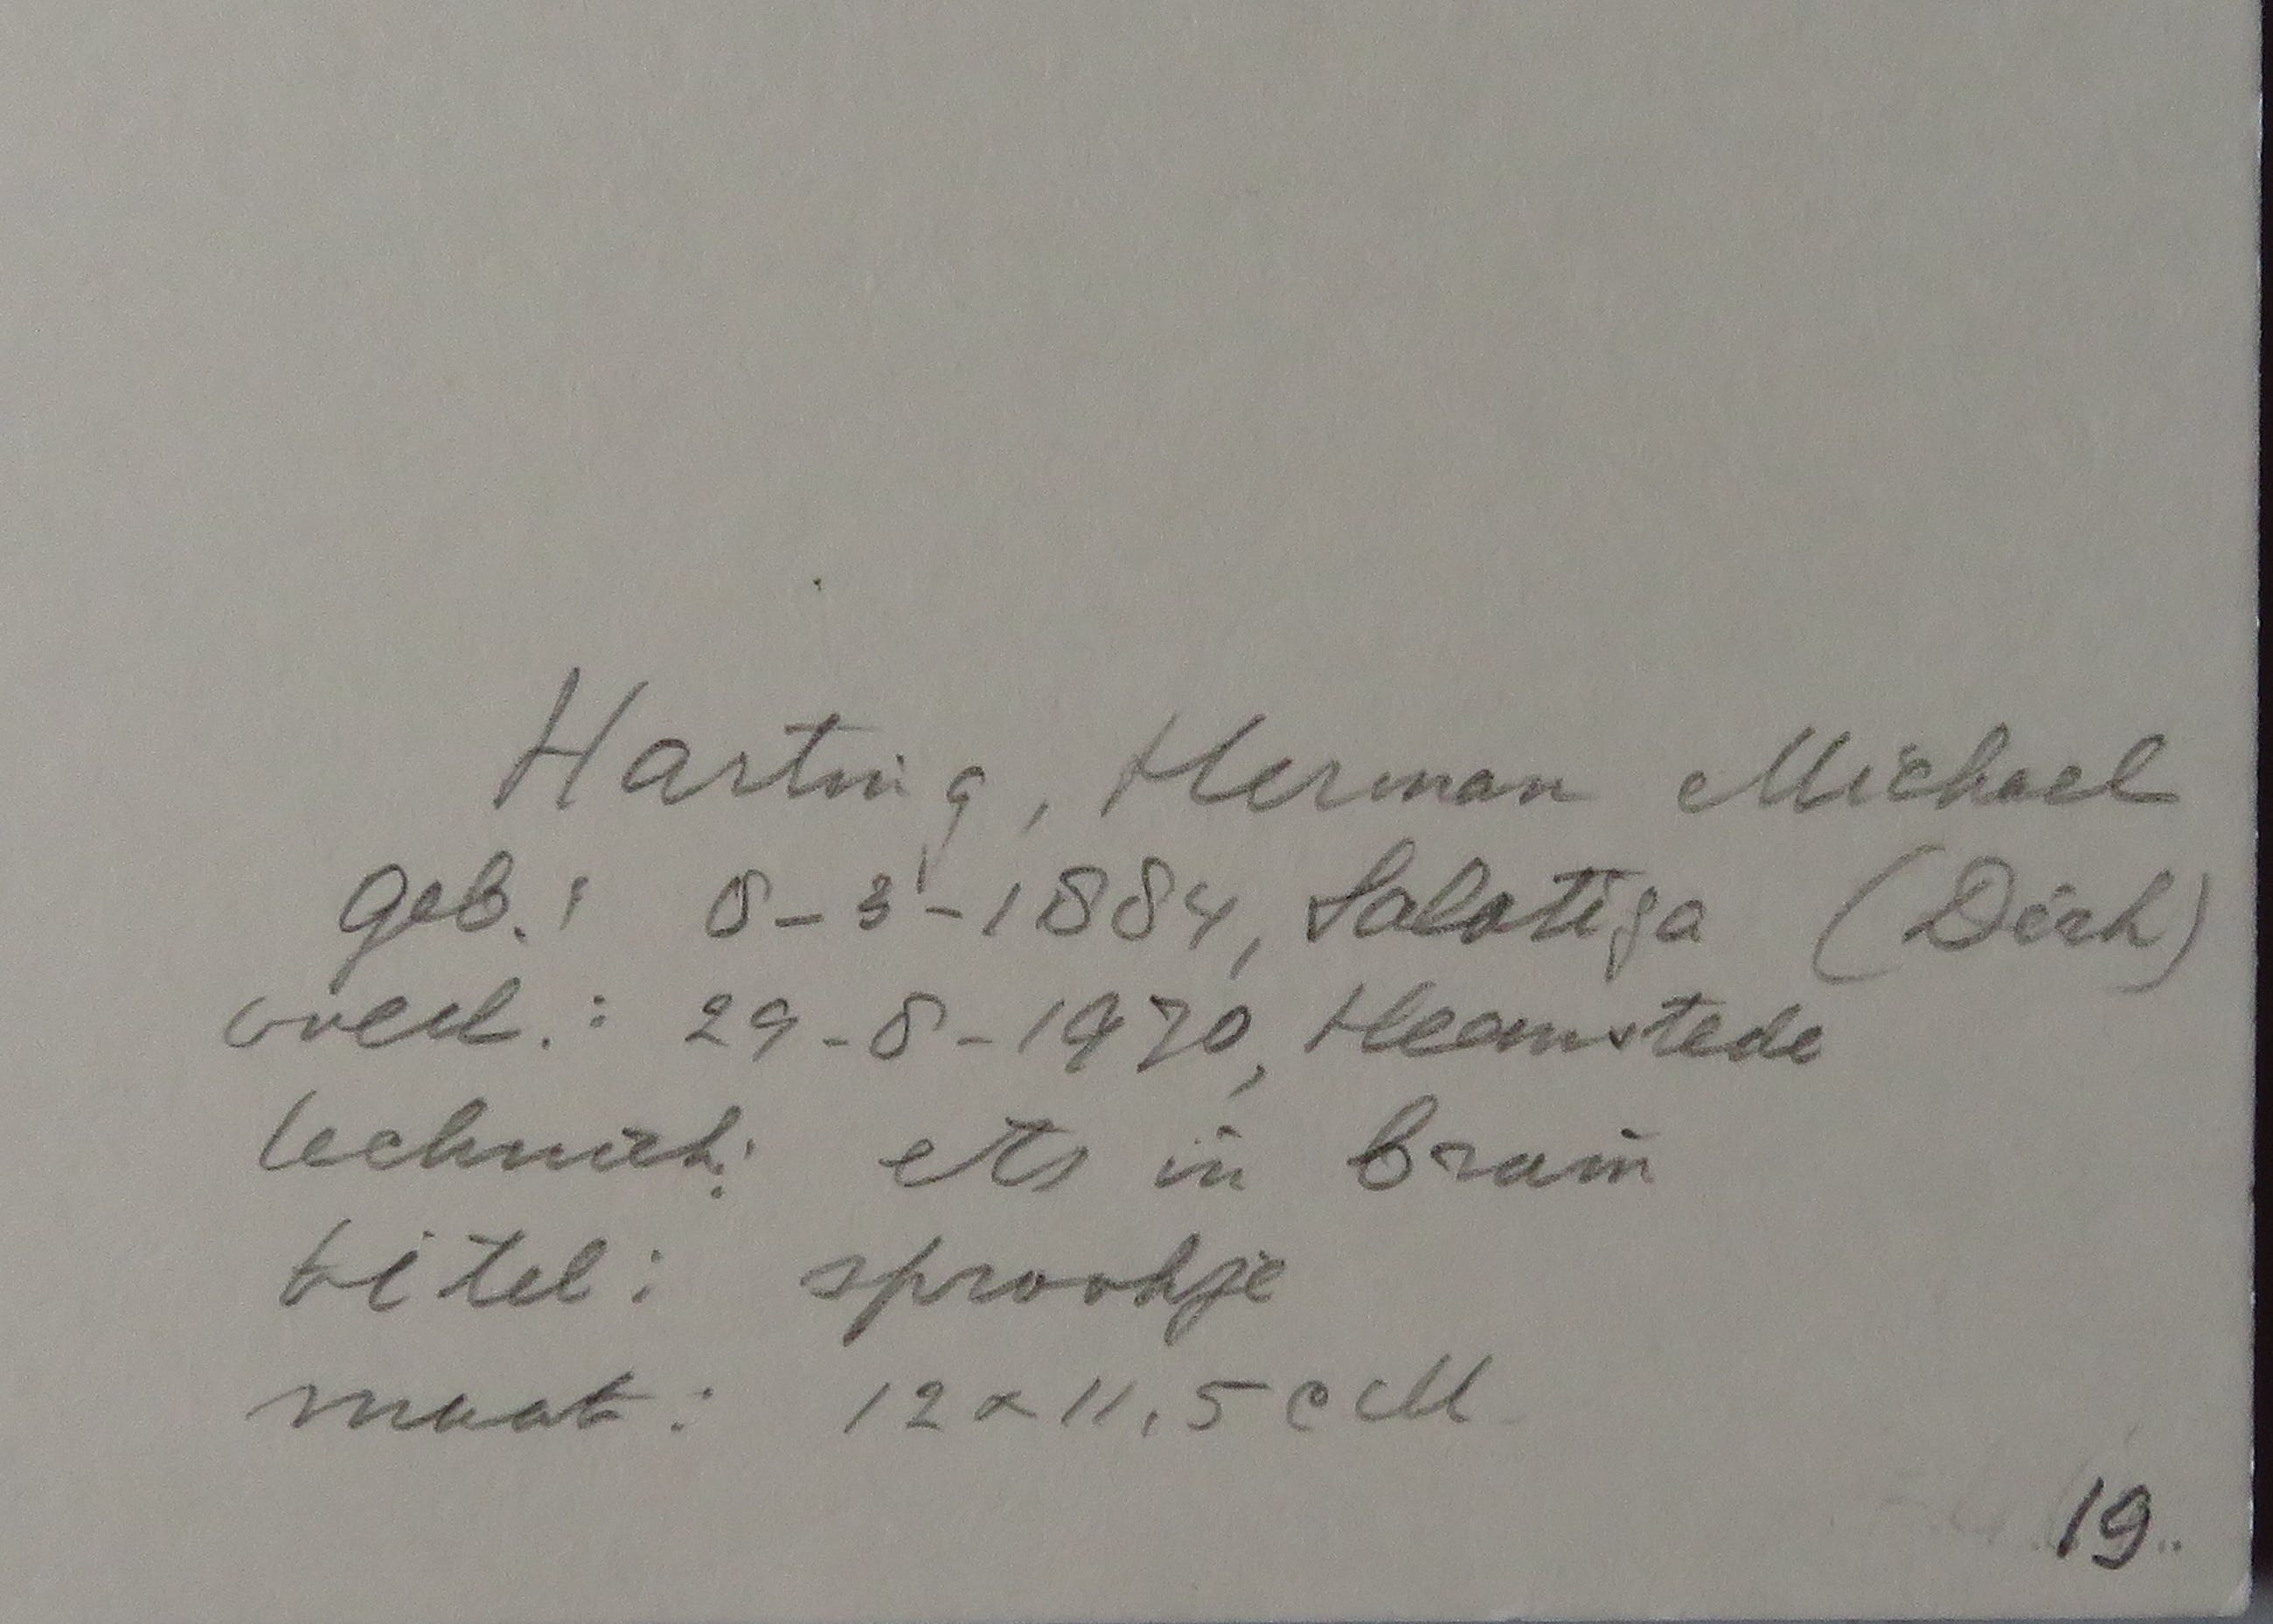 Harting, Herman Michael
geb.: 8-3-1884, Salatiga (Dirk)
overl.: 29-8-1970, Heemstede
techniek: ets in bruin
titel: sprookje
maat: 12 x 11,5 cM
19.